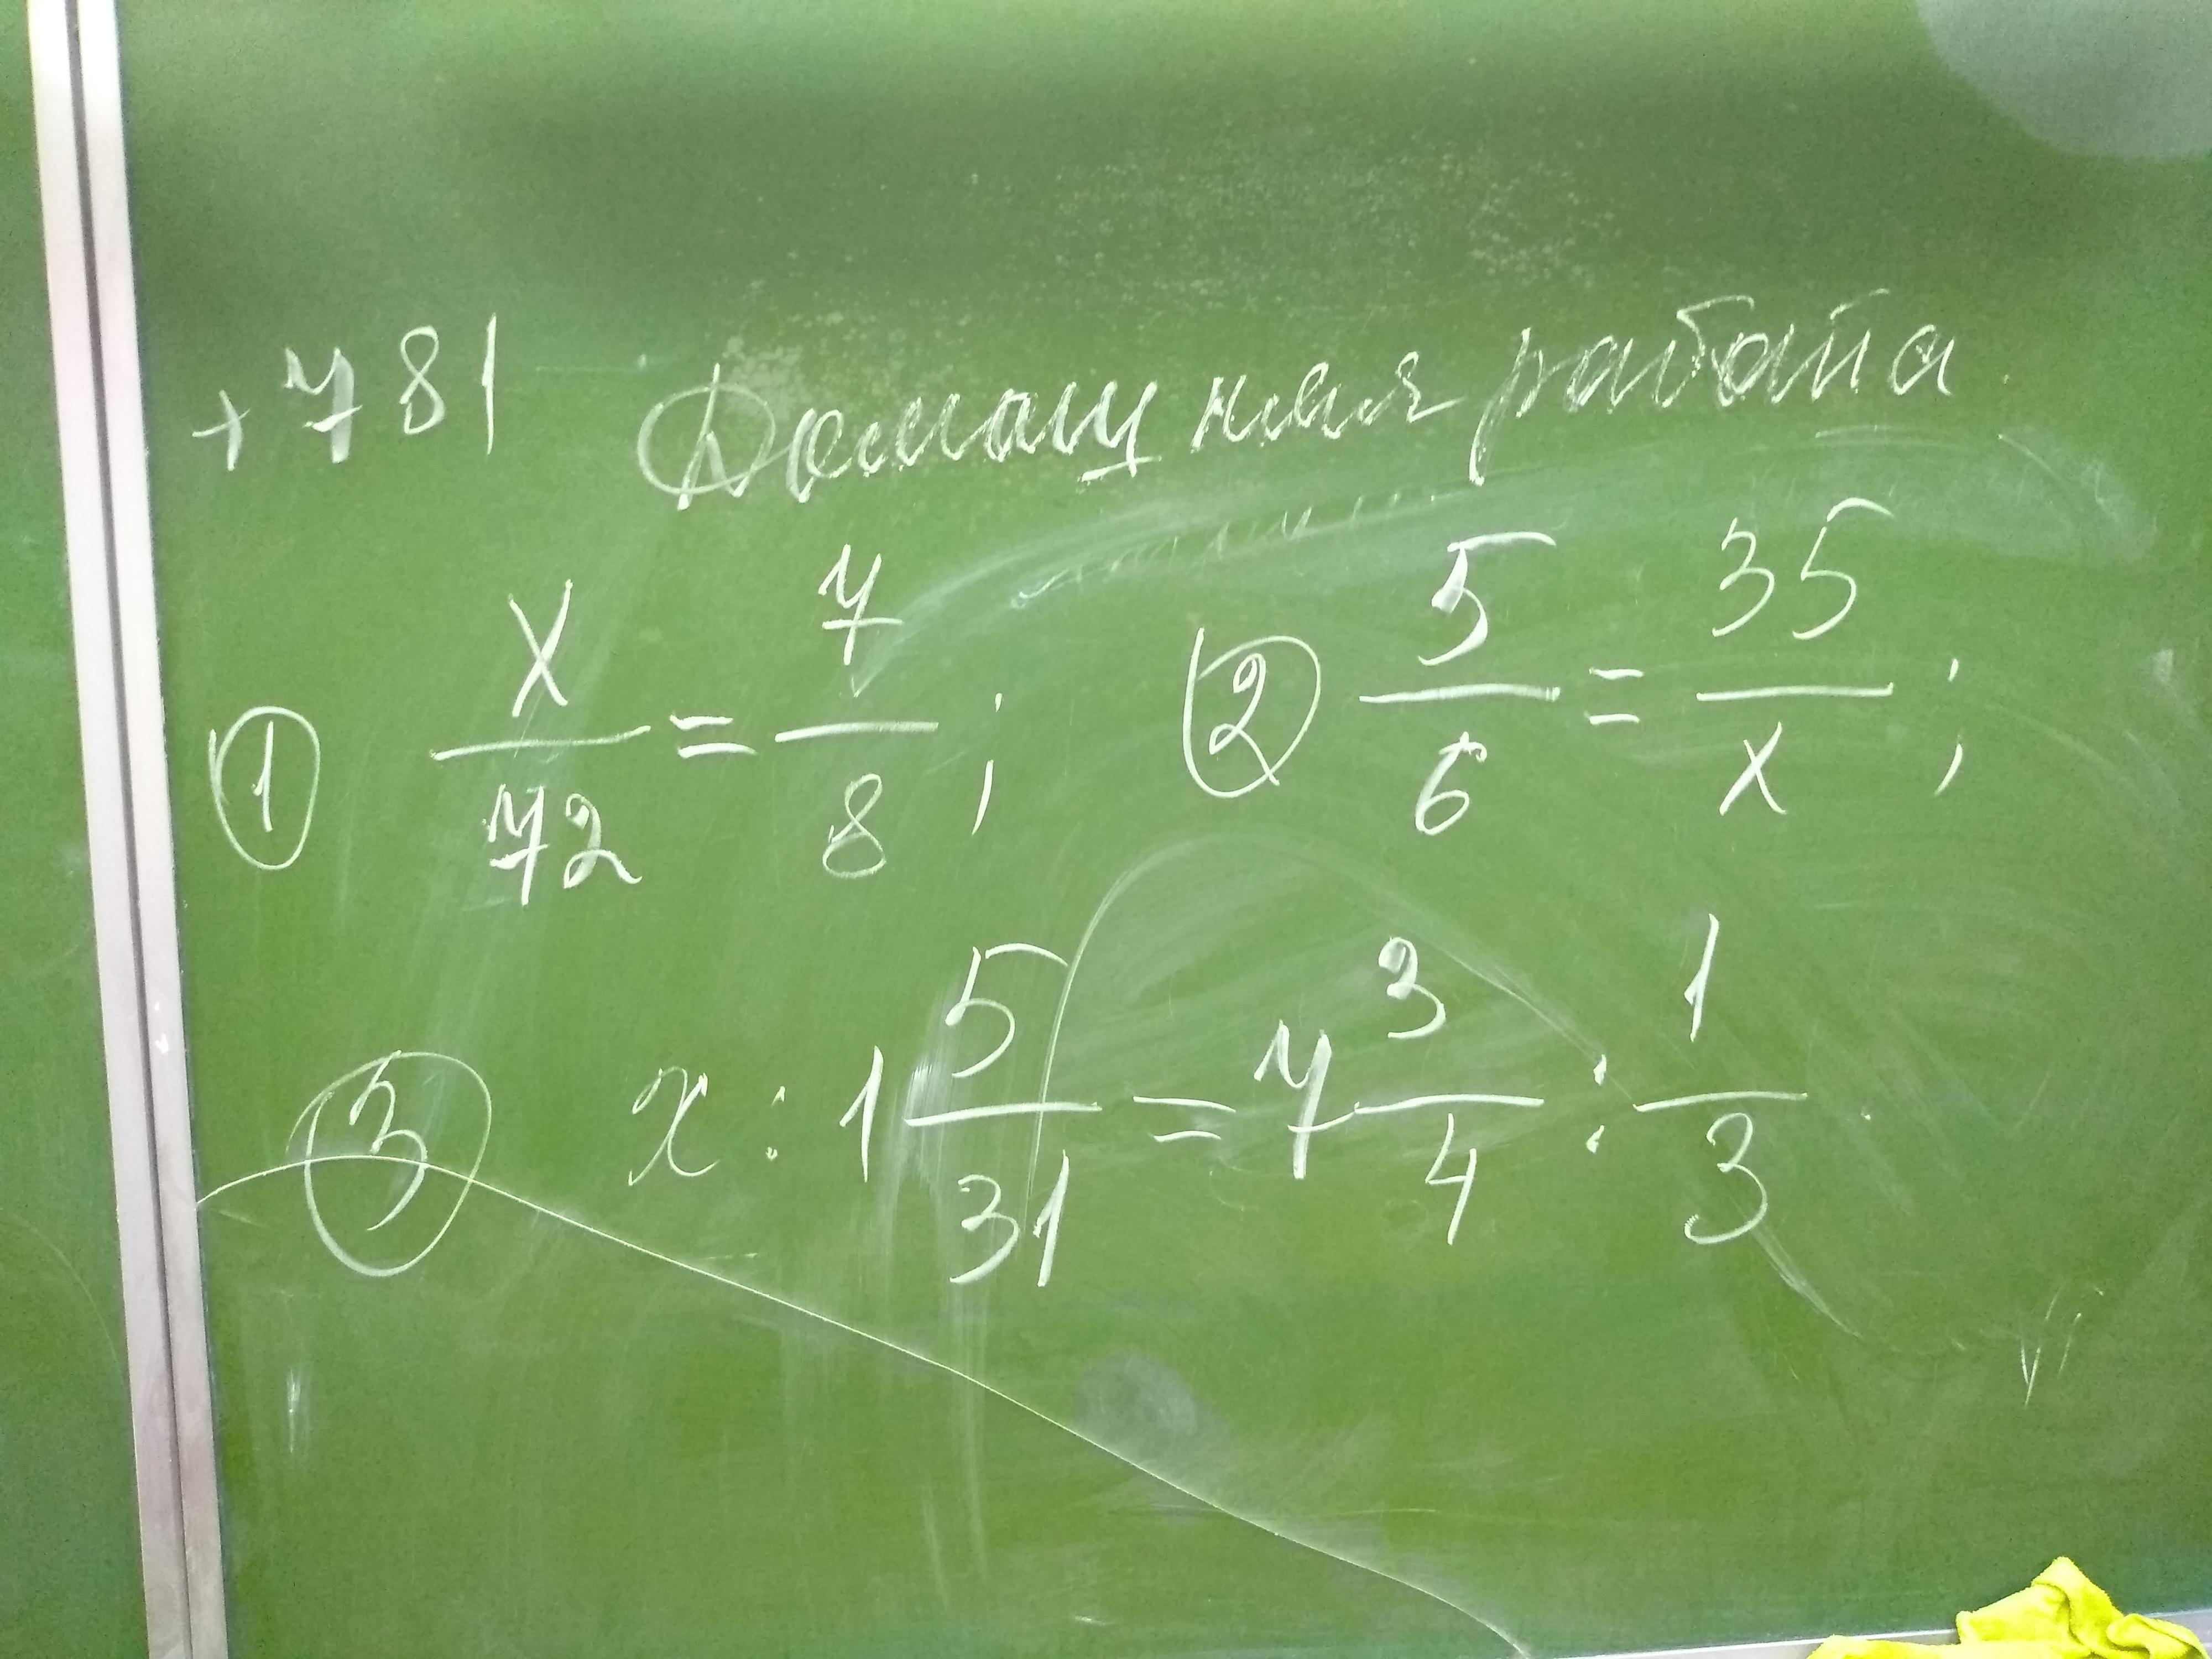 +781 Домашняя работа
① x/72 = 7/8 ; ② 5/6 = 35/x ;
③ x : 1 5/31 = 7 3/4 : 1/3